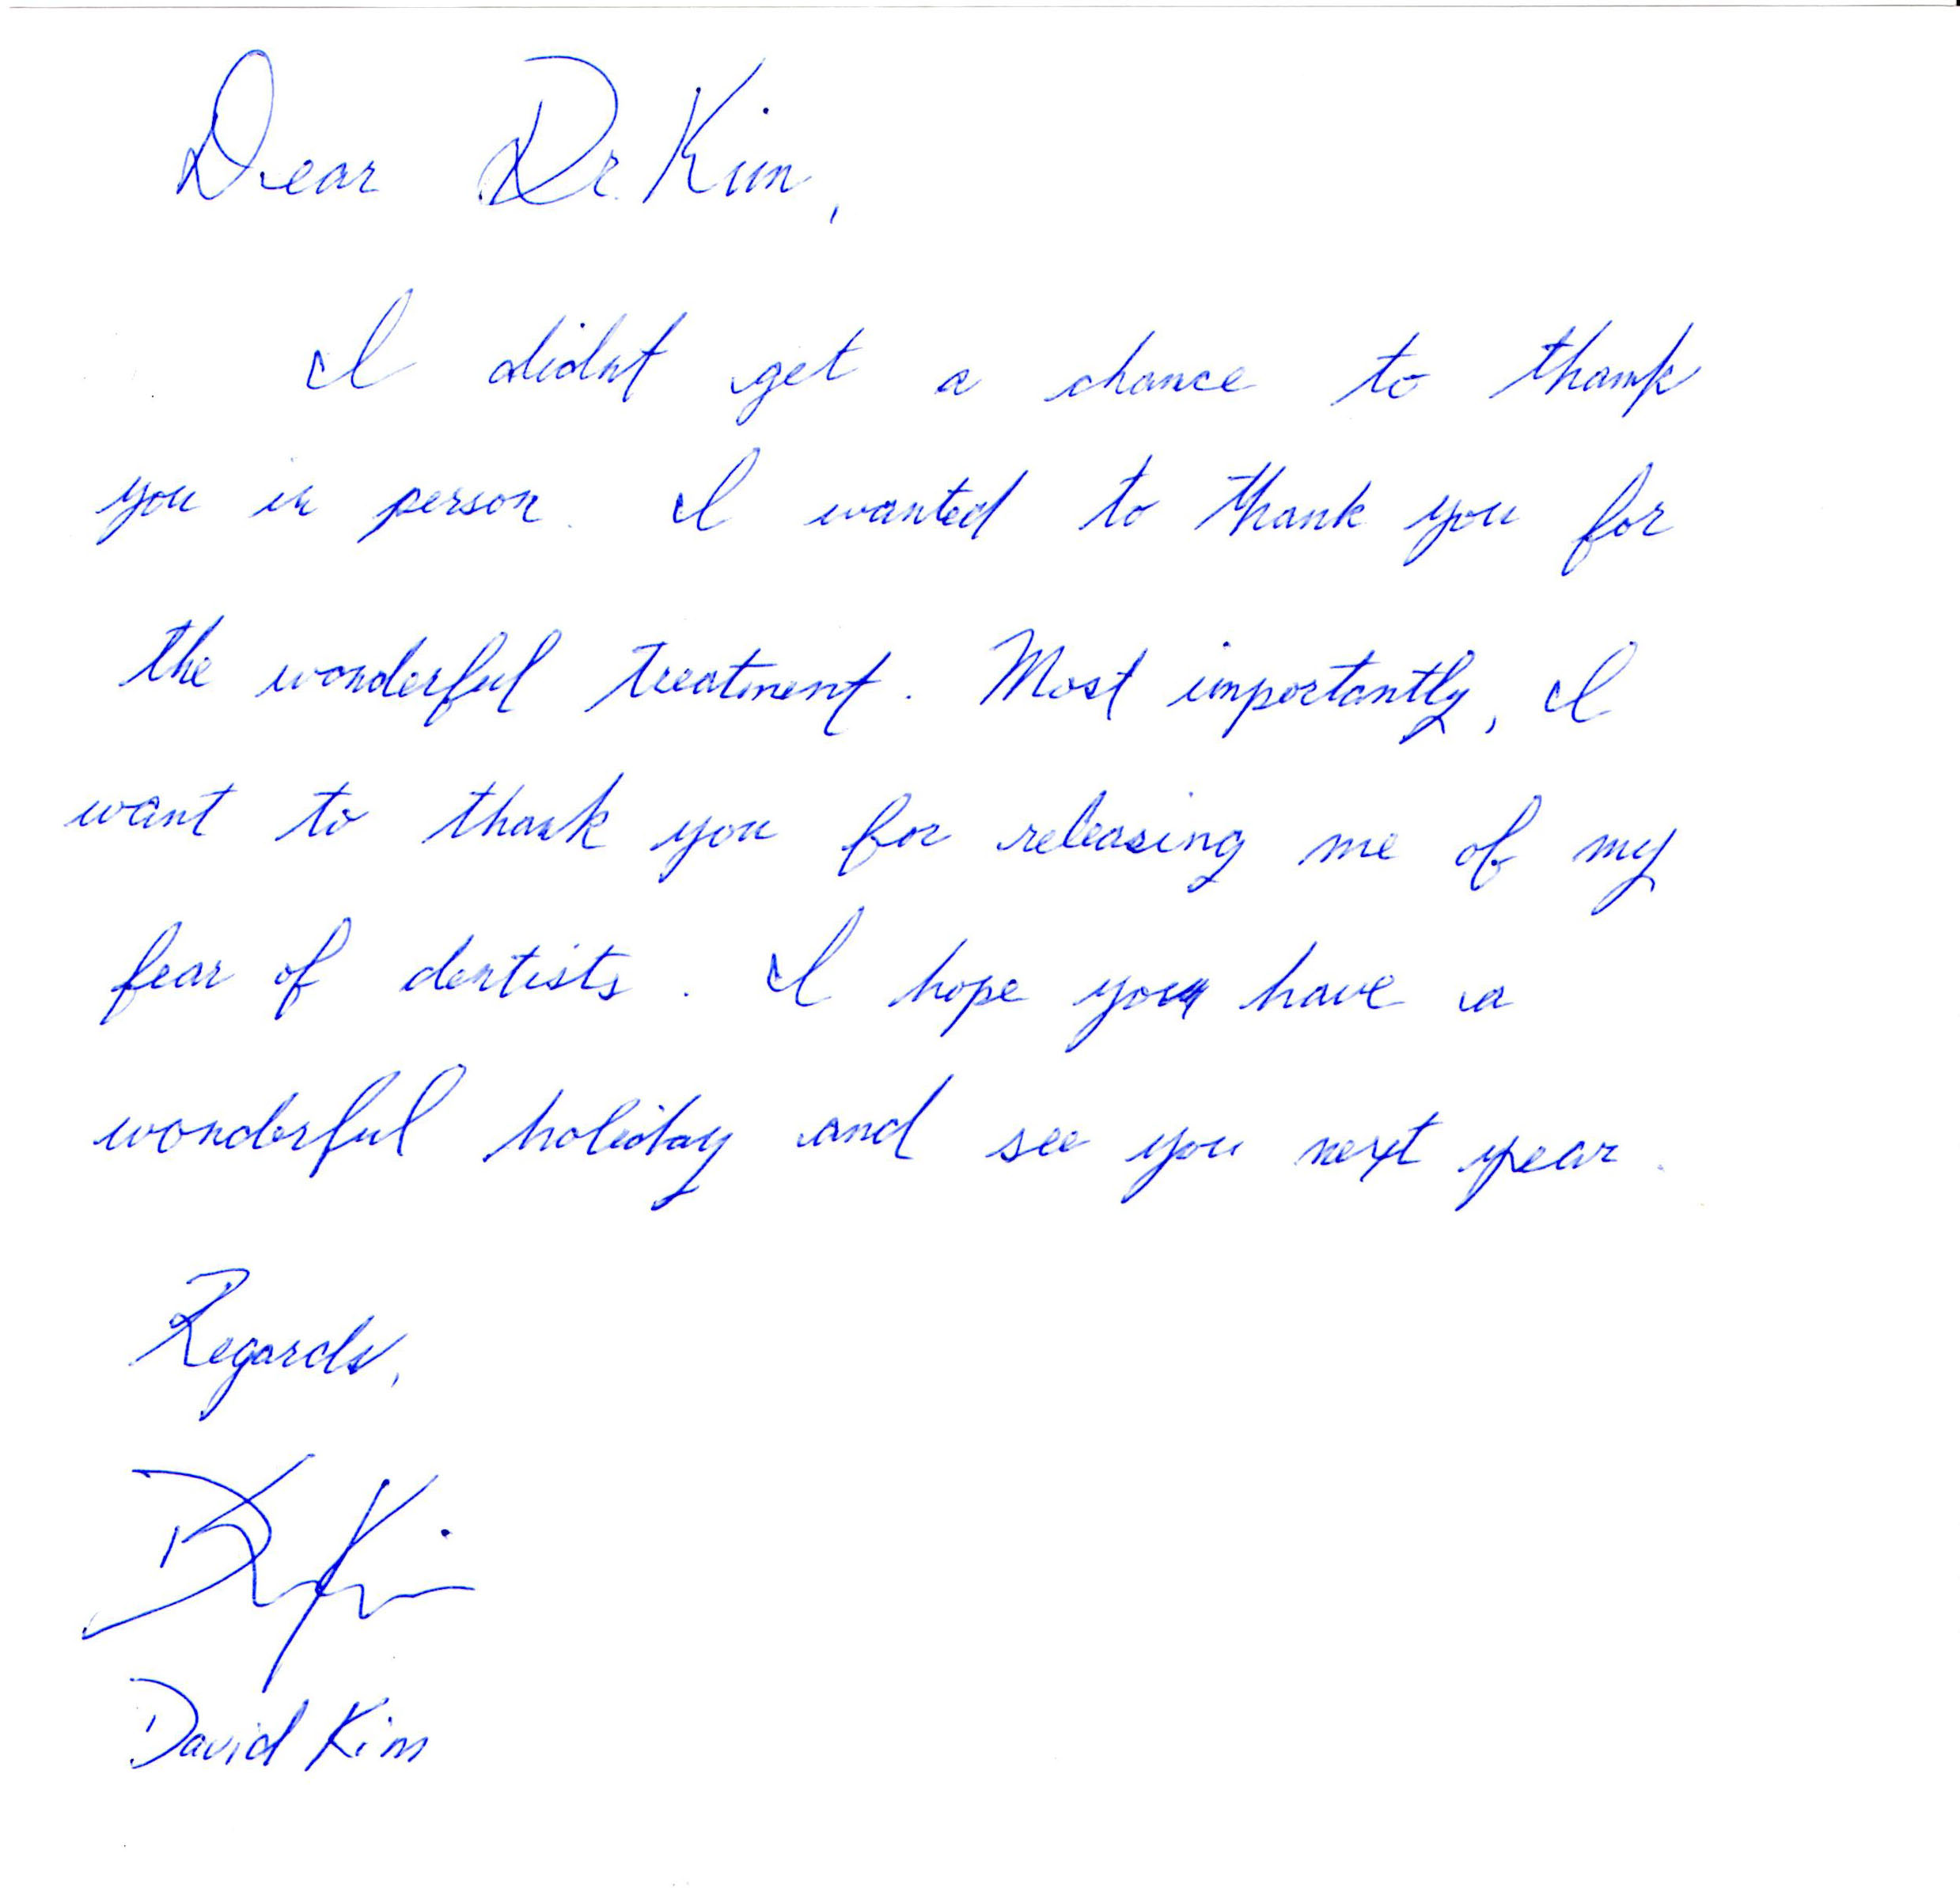 Dear Dr. Kim,
I didnt get a chance to thank
you in person. I wanted to thank you for
the wonderful treatment. Most importantly, I
want to thank you for releasing me of my
fear of dentists. I hope you have a
wonderful holiday and see you next year.
Regards,
David Kim